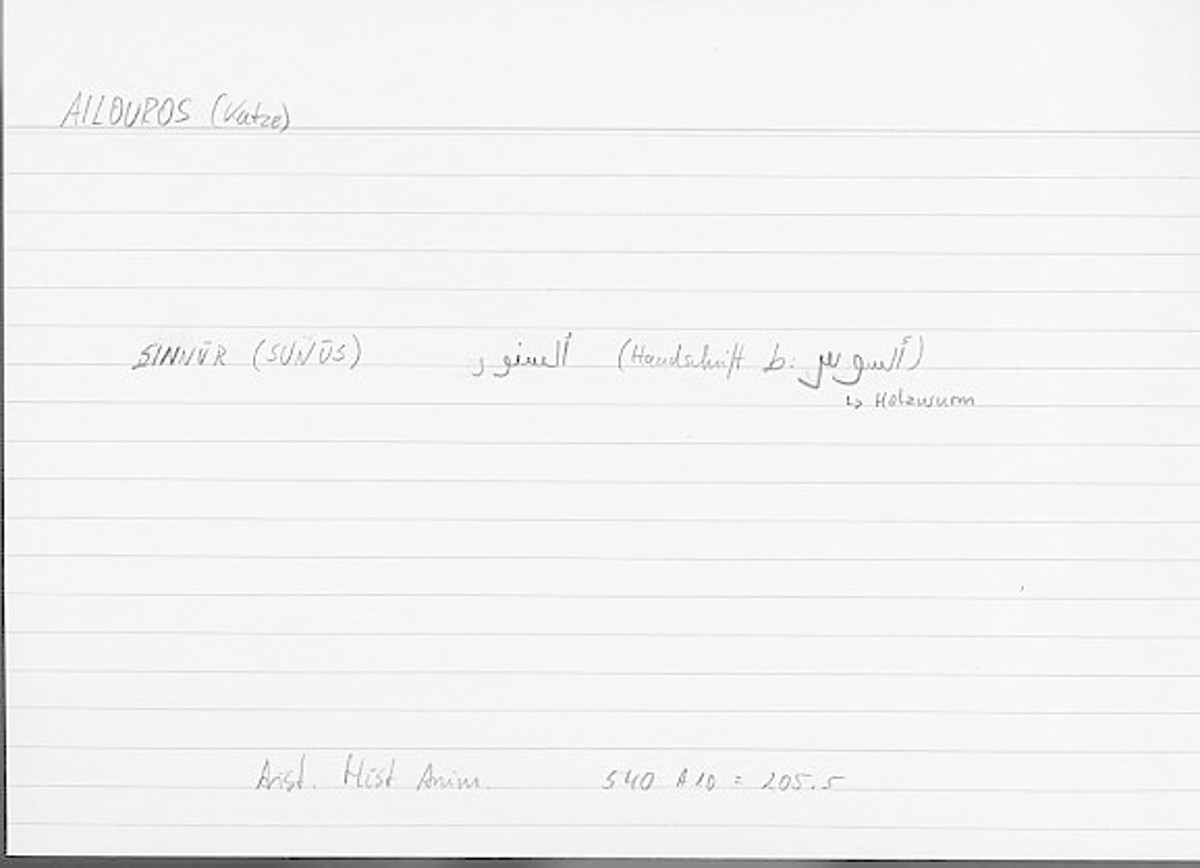 AILOUROS (Katze)
SINNŪR (SUNŪS) السنور (Handschrift b: السوس)
↳ Holzwurm
Arist. Hist Anim. 540 A10 = 205.5